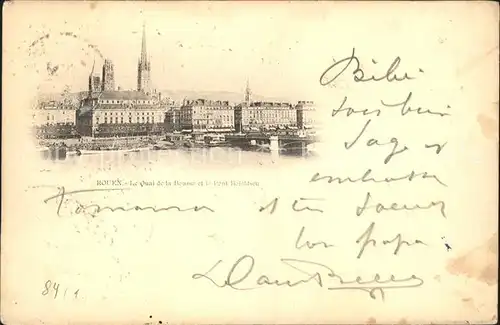 Bibi
sois bien
Sage et
embrasse
ROUEN. - Le Quai de la Bourse et le Pont Boïeldieu
ta maman et ta Soeur
ton papa
84/1